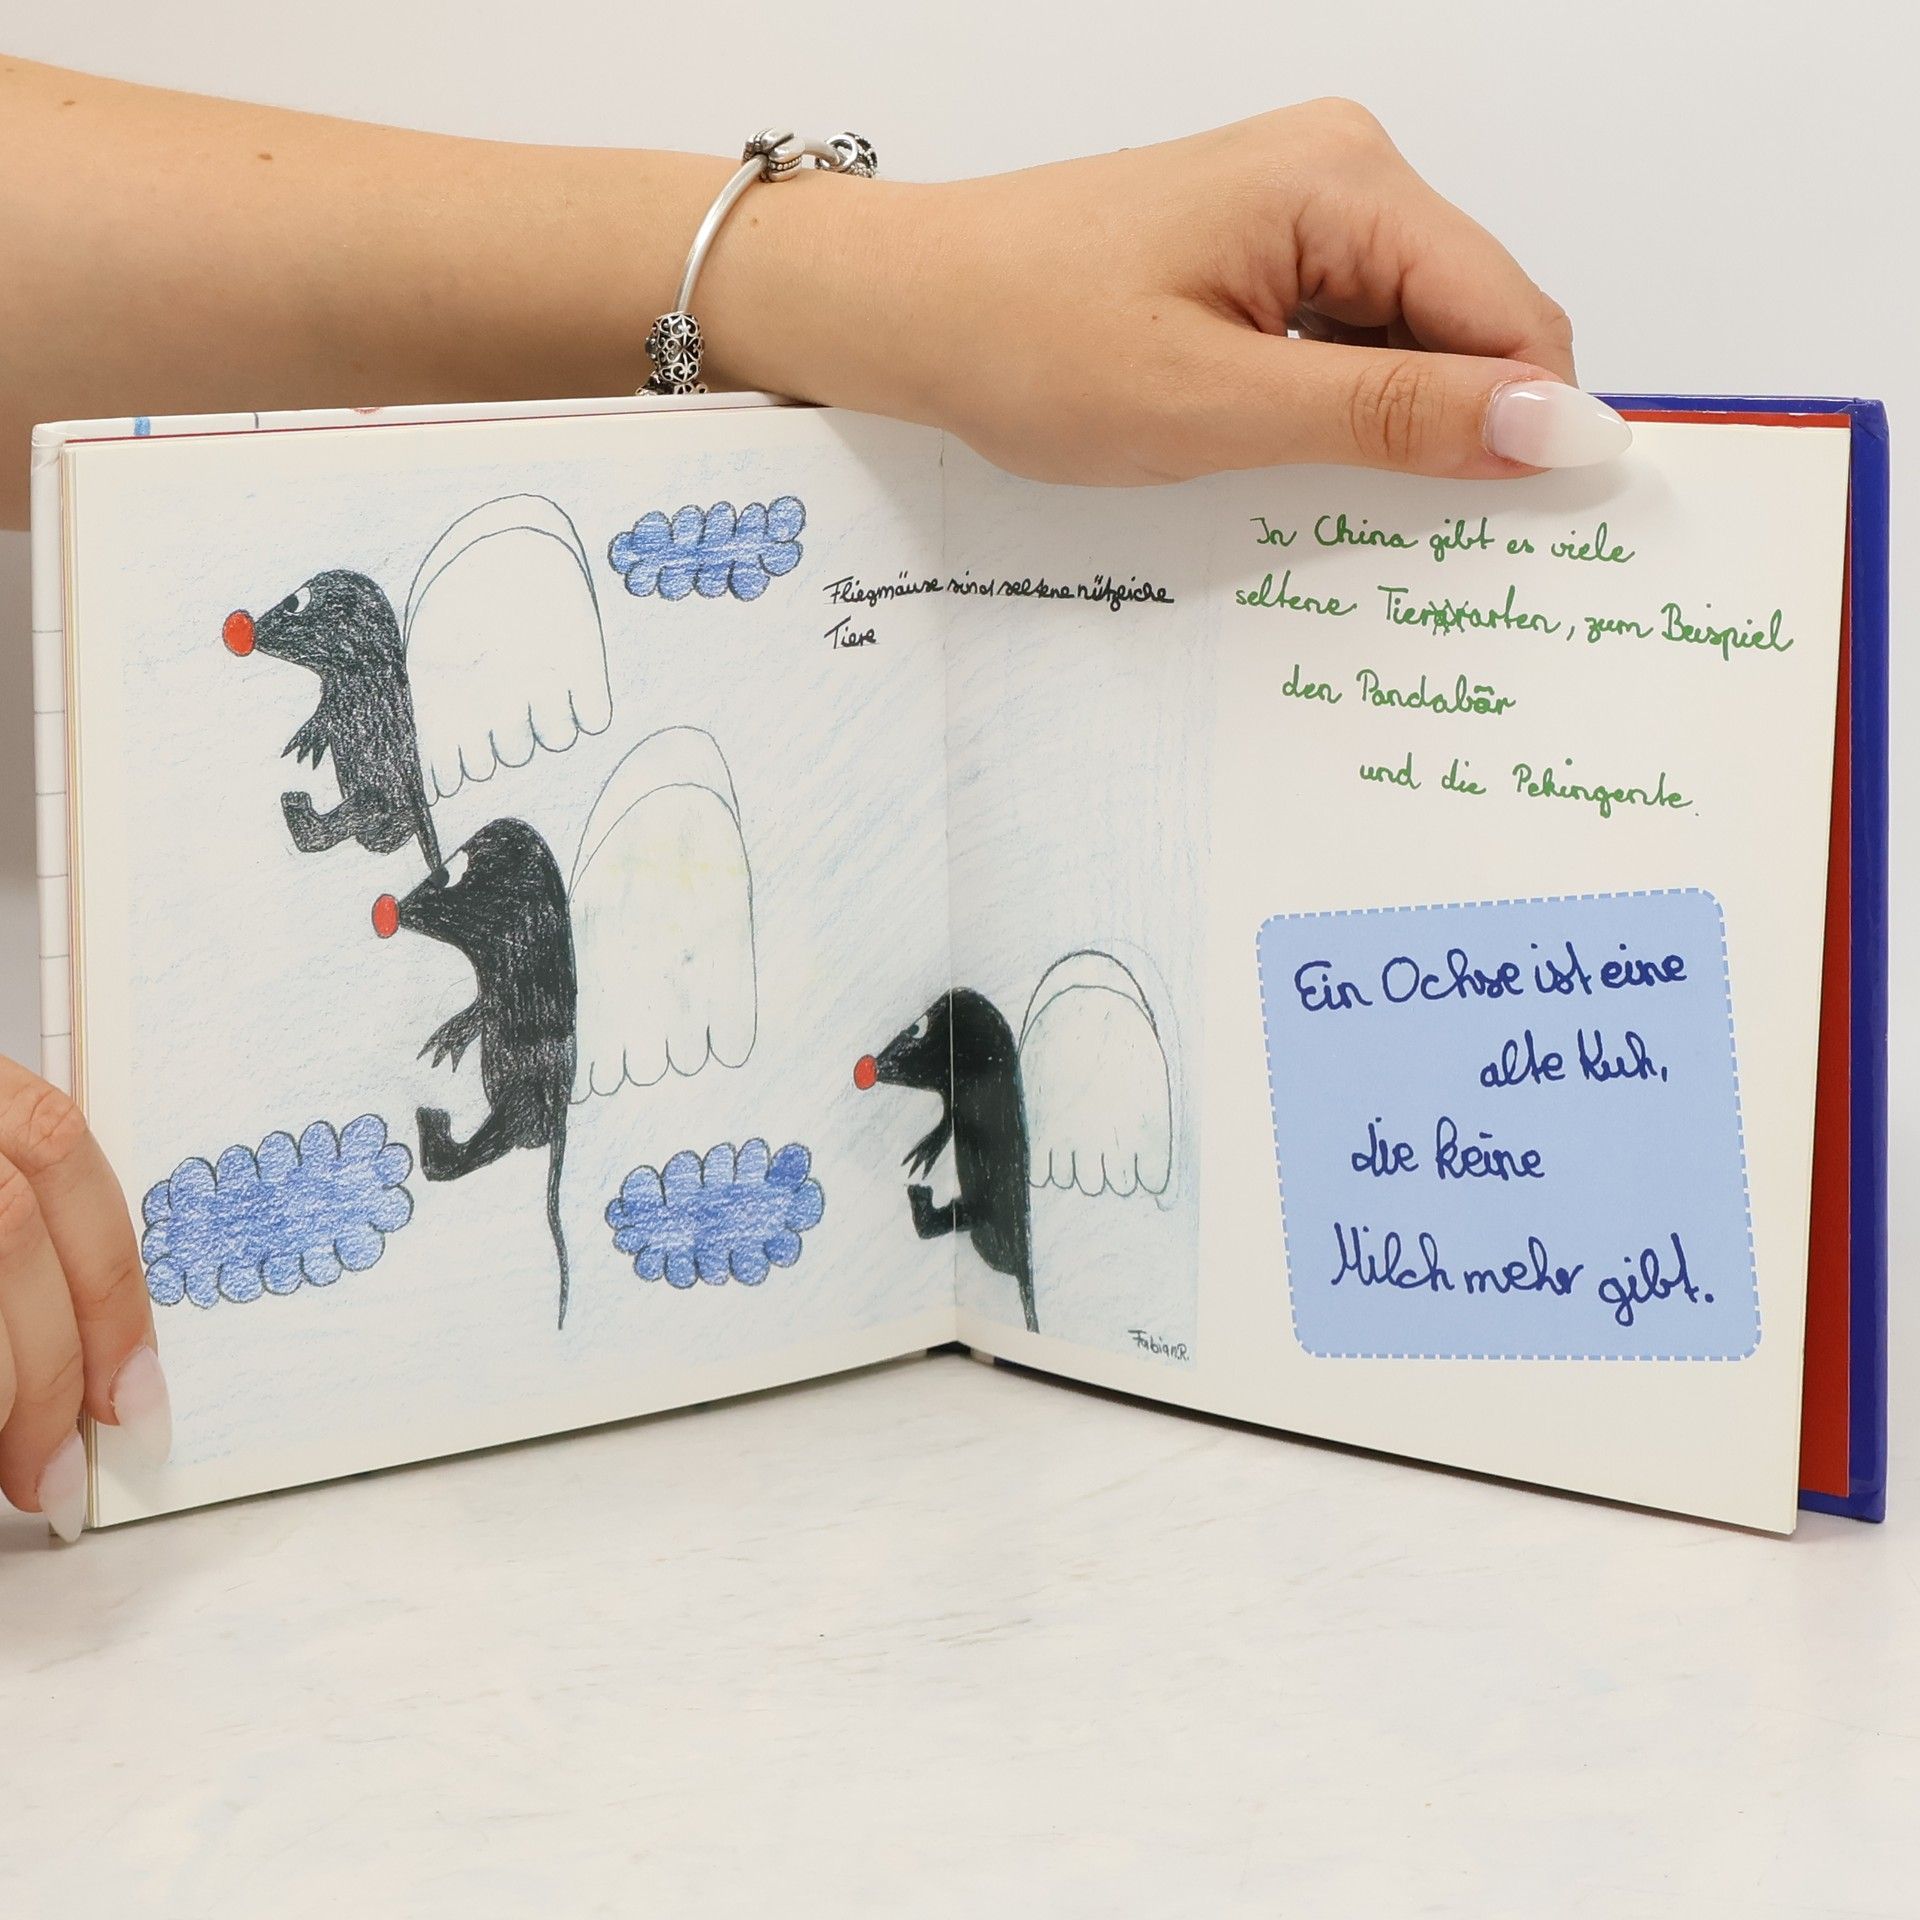 Fliegmäuse sind seltene nützeiche
Tiere
Fabian R.
In China gibt es viele
seltene Tierarten, zum Beispiel
den Pandabär
und die Pekingente.
Ein Ochse ist eine
alte Kuh,
die keine
Milch mehr gibt.